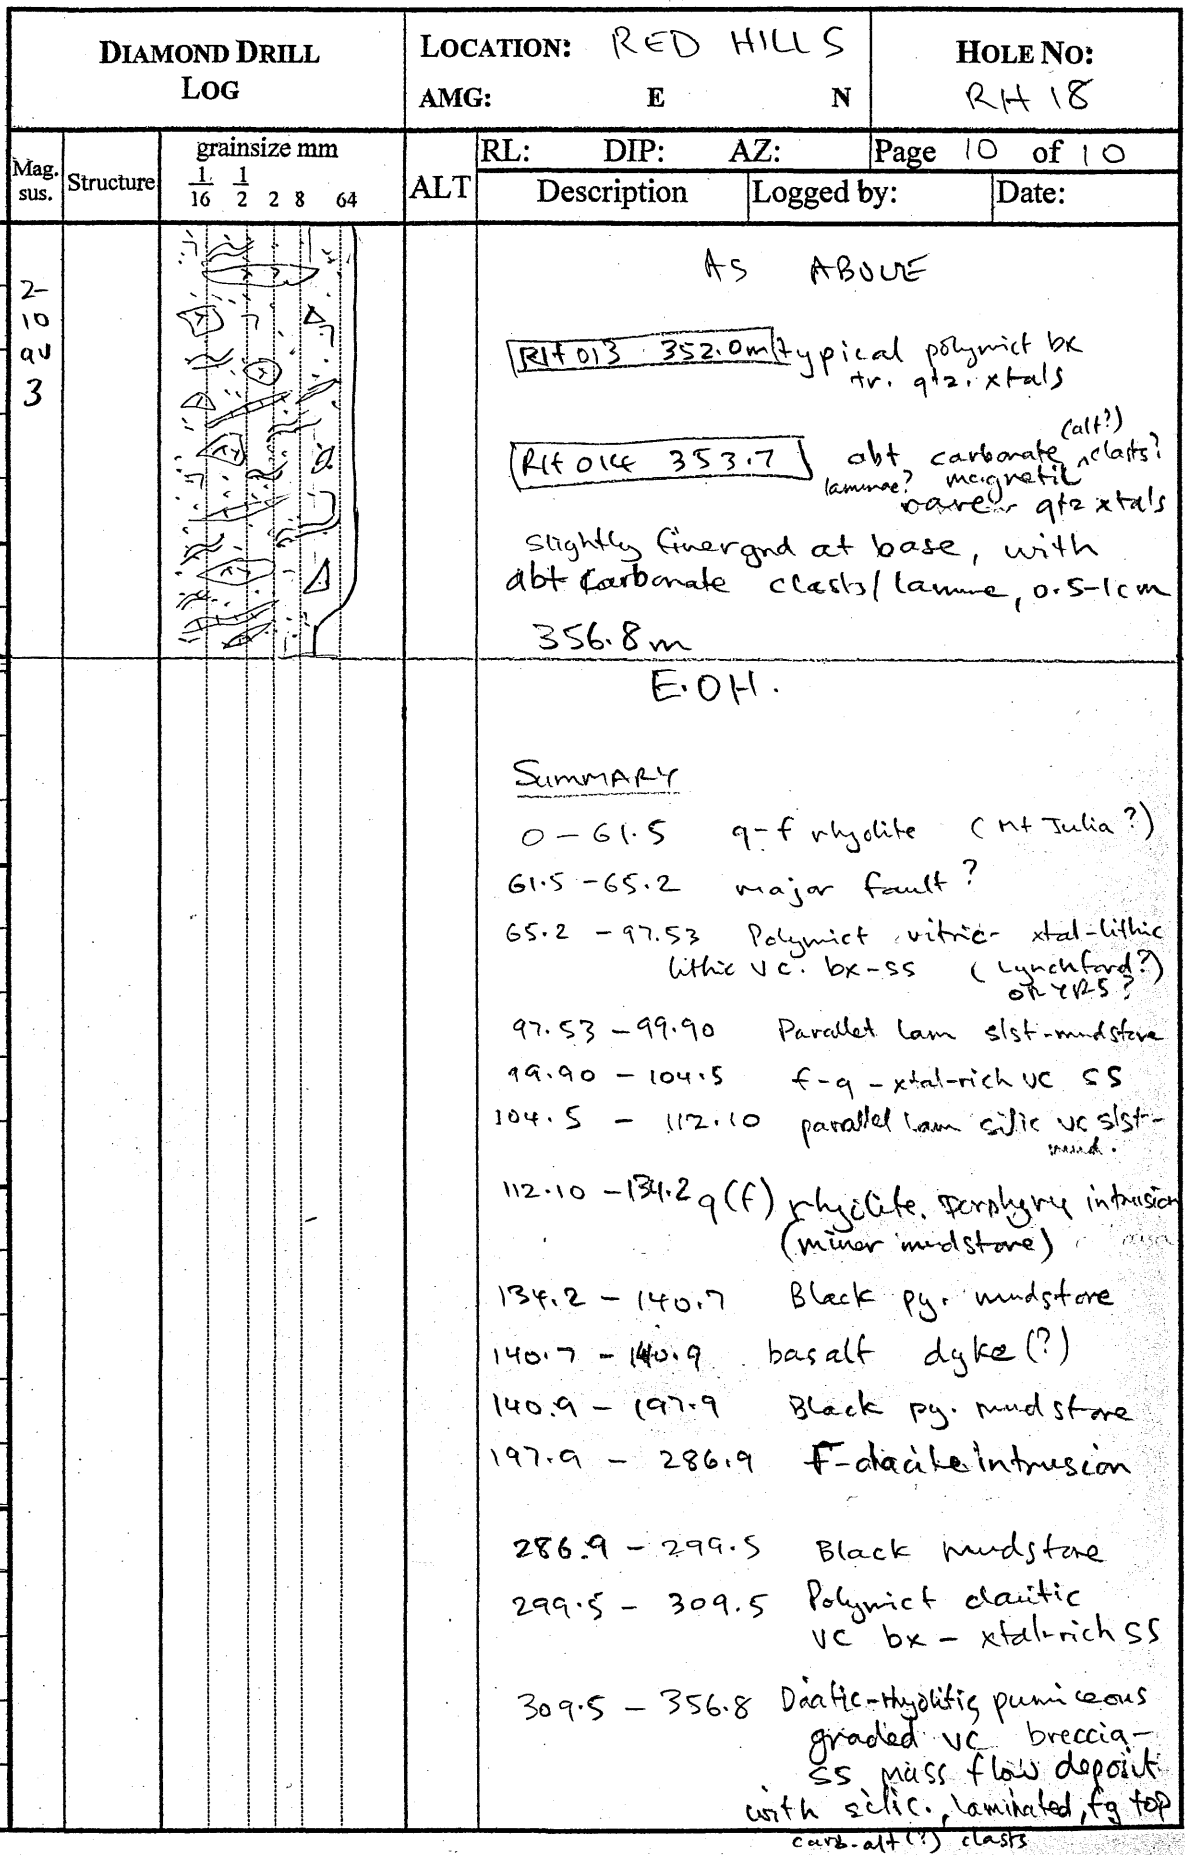 DIAMOND DRILL
LOG
LOCATION: RED HILLS
AMG: E N
HOLE NO:
RH 18
Mag.
sus.
Structure
grainsize mm
1/16 1/2 2 8 64
ALT
RL: DIP: AZ:
Page 10 of 10
Description
Logged by:
Date:
2-
10
av
3
AS ABOVE
RH 013 352.0m typical polymict bx
tr. qtz. xtals
(alt?)
RH 014 353.7 abt carbonate clasts?
laminae? magnetic
qtz xtals
slightly finergnd at base, with
abt carbonate clasts/ lamine, 0.5-1cm
356.8m
E.OH.
SUMMARY
0 - 61.5 q-f rhyolite (Mt Julia?)
61.5 - 65.2 major fault?
65.2 - 97.53 Polymict vitric- xtal-lithic
lithic vc. bx-ss (Lynchford?)
OR YRS?
97.53 - 99.90 Parallel lam slst-mudstone
99.90 - 104.5 f-q-xtal-rich vc ss
104.5 - 112.10 parallel lam silic vc slst-
mud.
112.10 - 134.2 q(f) rhyolite. porphyry intrusion
(minor mudstone)
134.2 - 140.7 Black py. mudstone
140.7 - 140.9 basalt dyke(?)
140.9 - 197.9 Black py. mudstone
197.9 - 286.9 F-dacite intrusion
286.9 - 299.5 Black mudstone
299.5 - 309.5 Polymict dacitic
vc bx - xtal-rich ss
309.5 - 356.8 Dacitic-rhyolitic pumiceous
graded vc breccia-
ss mass flow deposit
with silic., laminated, fg top
carb-alt(?) clasts